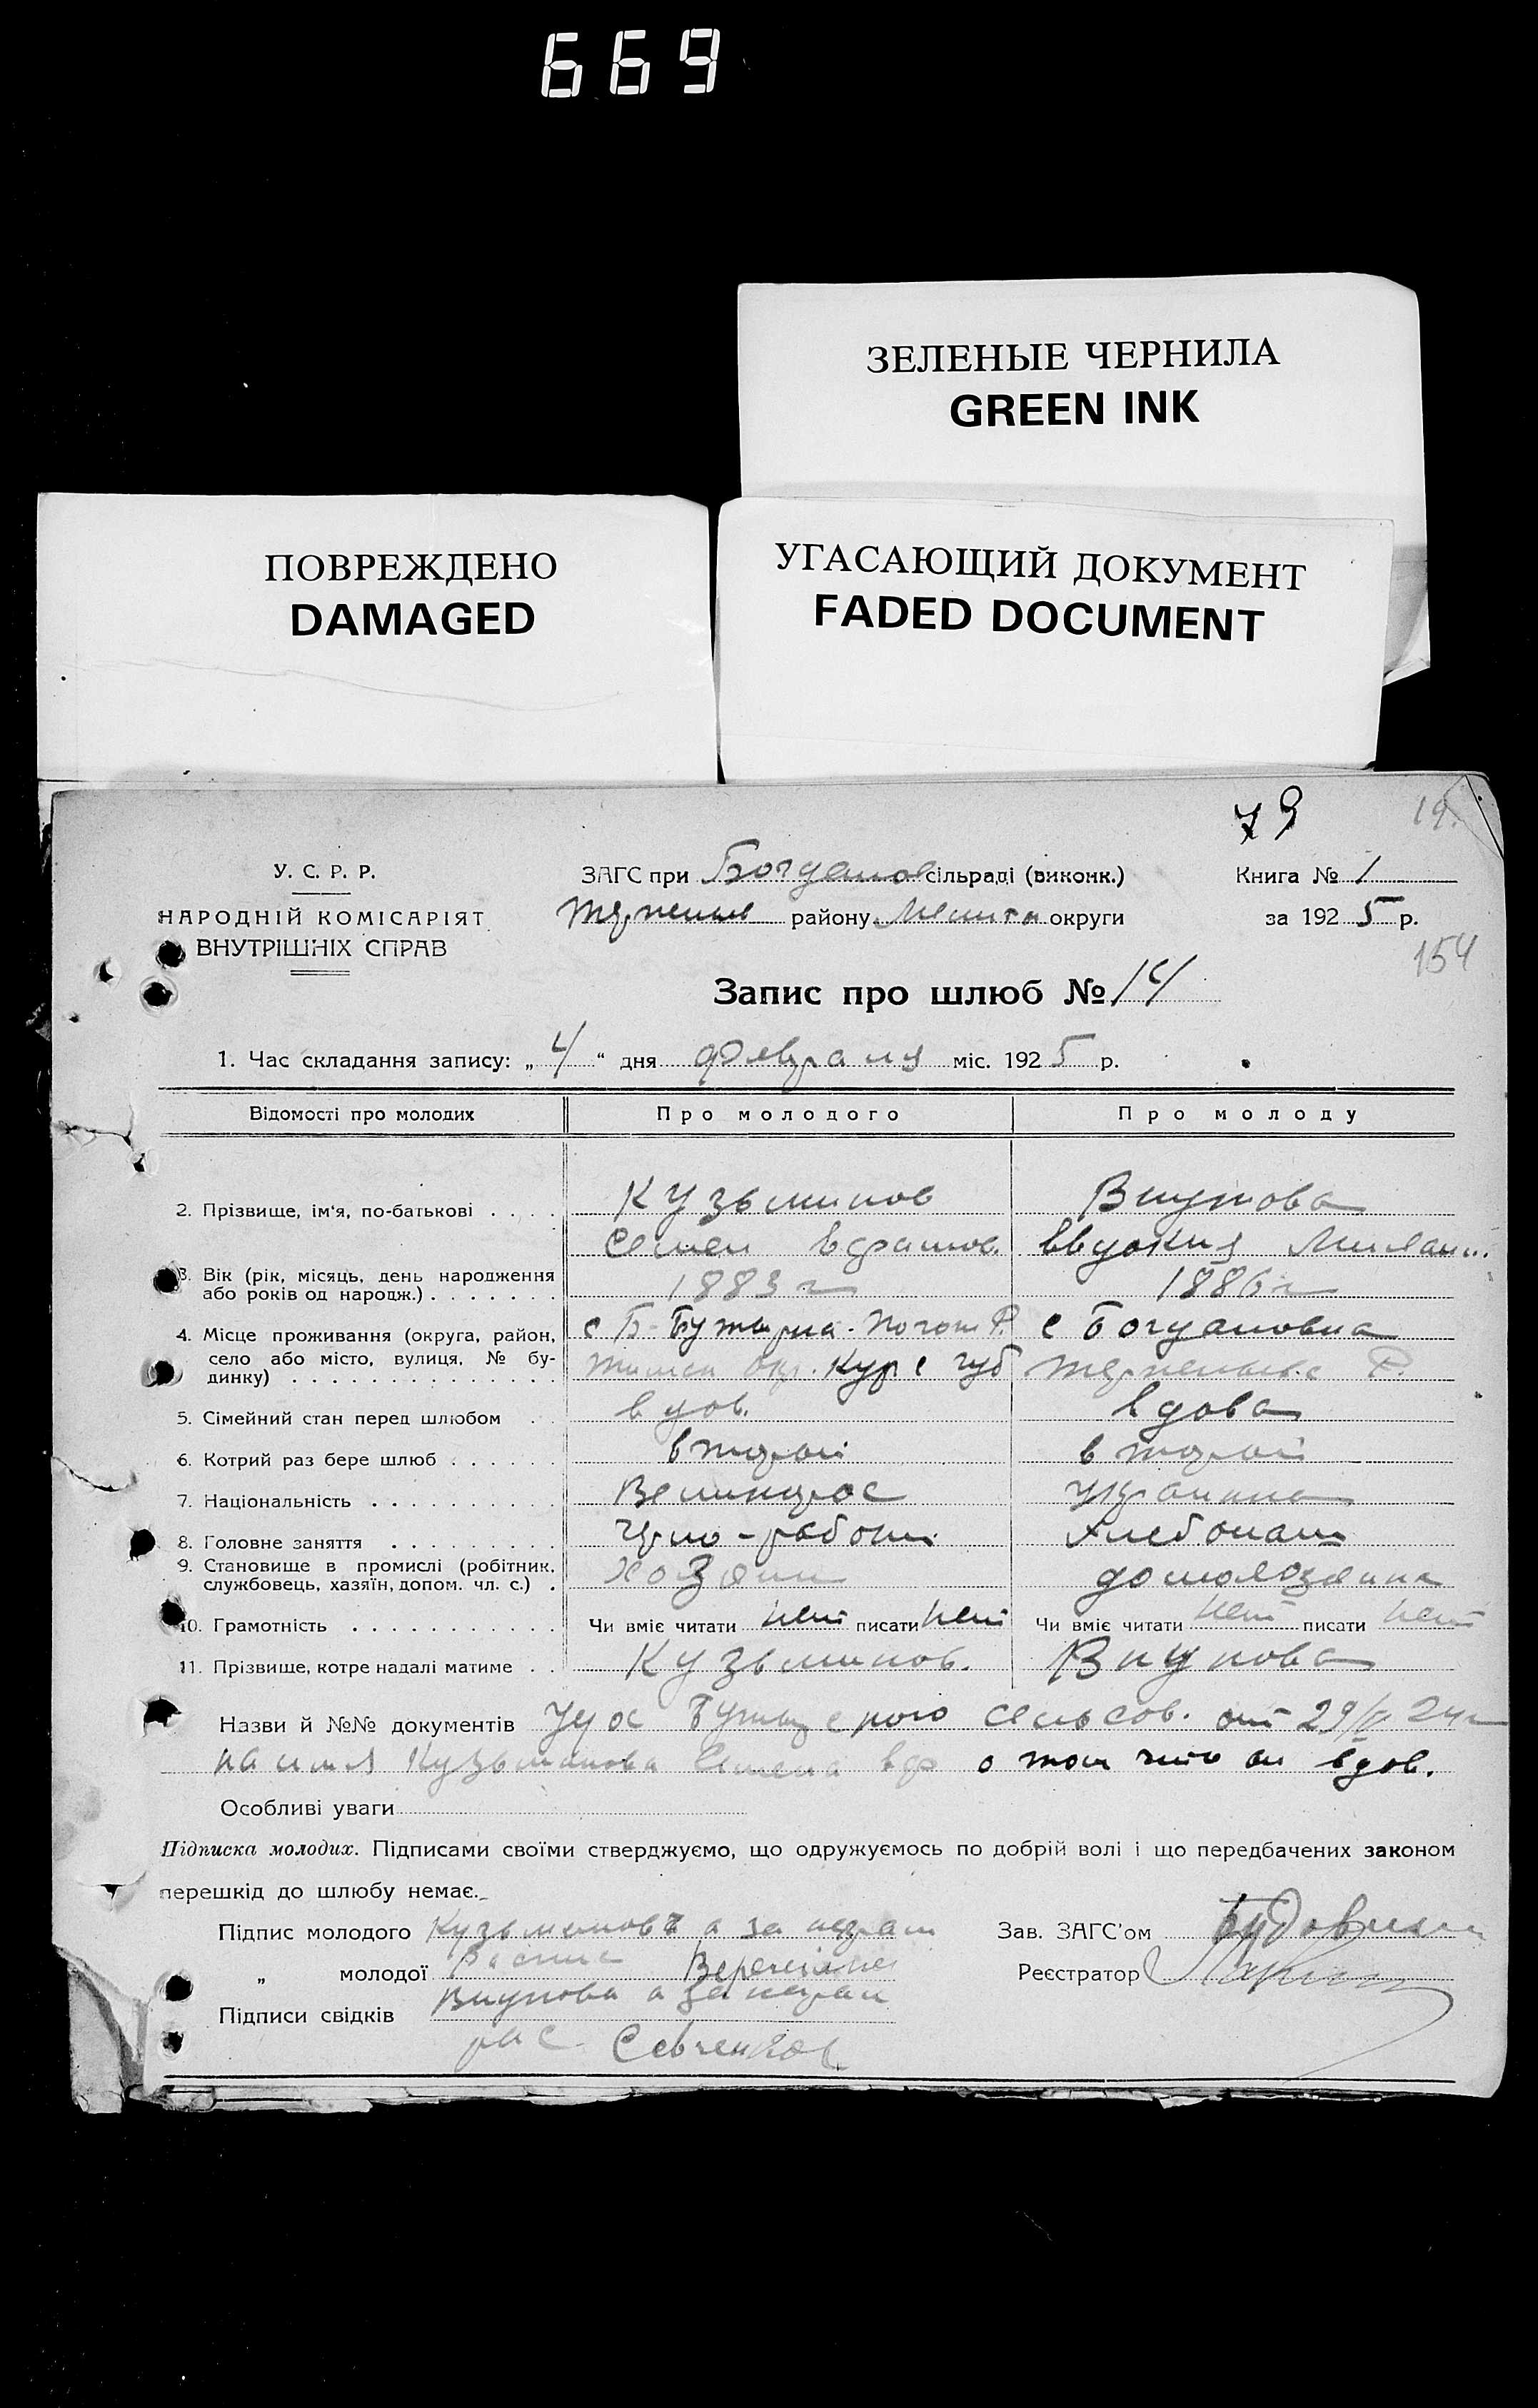 669
ЗЕЛЕНЫЕ ЧЕРНИЛА
GREEN INK
ПОВРЕЖДЕНО
DAMAGED
УГАСАЮЩИЙ ДОКУМЕНТ
FADED DOCUMENT
79 19.
У. С. Р. Р.
ЗАГС при Богданов сільраді (виконк.) Книга № 1
НАРОДНІЙ КОМІСАРІЯТ
ВНУТРІШНІХ СПРАВ
району округи за 1925 р.
154
Запис про шлюб № 14
1. Час складання запису: „4“ дня февраля міс. 1925 р.
Відомості про молодих Про молодого Про молоду
2. Прізвище, ім'я, по-батькові . . . . Кузьминов Внукова
Семен Ефрамов. Евдокия
3. Вік (рік, місяць, день народження або років од народж.) . . . . . . . 1883 г 1886 г
4. Місце проживання (округа, район, село або місто, вулиця, № будинку) . . . . . . . . . . . . . . с Богдановка
Кур с губ Р.
5. Сімейний стан перед шлюбом . . вдов. вдова
6. Котрий раз бере шлюб . . . . . . второй второй
7. Національність . . . . . . . . . . Великорос Украинка
8. Головне заняття . . . . . . . . . Черно-рабочи Хлебопаш
9. Становище в промислі (робітник, службовець, хазяїн, допом. чл. с.) . Хозяин домохозяика
10. Грамотність . . . . . . . . . . . Чи вміє читати нет писати нет Чи вміє читати нет писати нет
11. Прізвище, котре надалі матиме . . Кузьминов. Внукова
Назви й №№ документів сельсов. от 29/ 24 г
на имя Кузьминова Семена Еф о том что он вдов.
Особливі уваги
Підписка молодих. Підписами своїми стверджуємо, що одружуємось по добрій волі і що передбачених законом
перешкід до шлюбу немає.
Підпис молодого Кузьминовъ а за неграм Зав. ЗАГС'ом
„ молодої Реєстратор
Внукова а за неграм
Підписи свідків
рас.